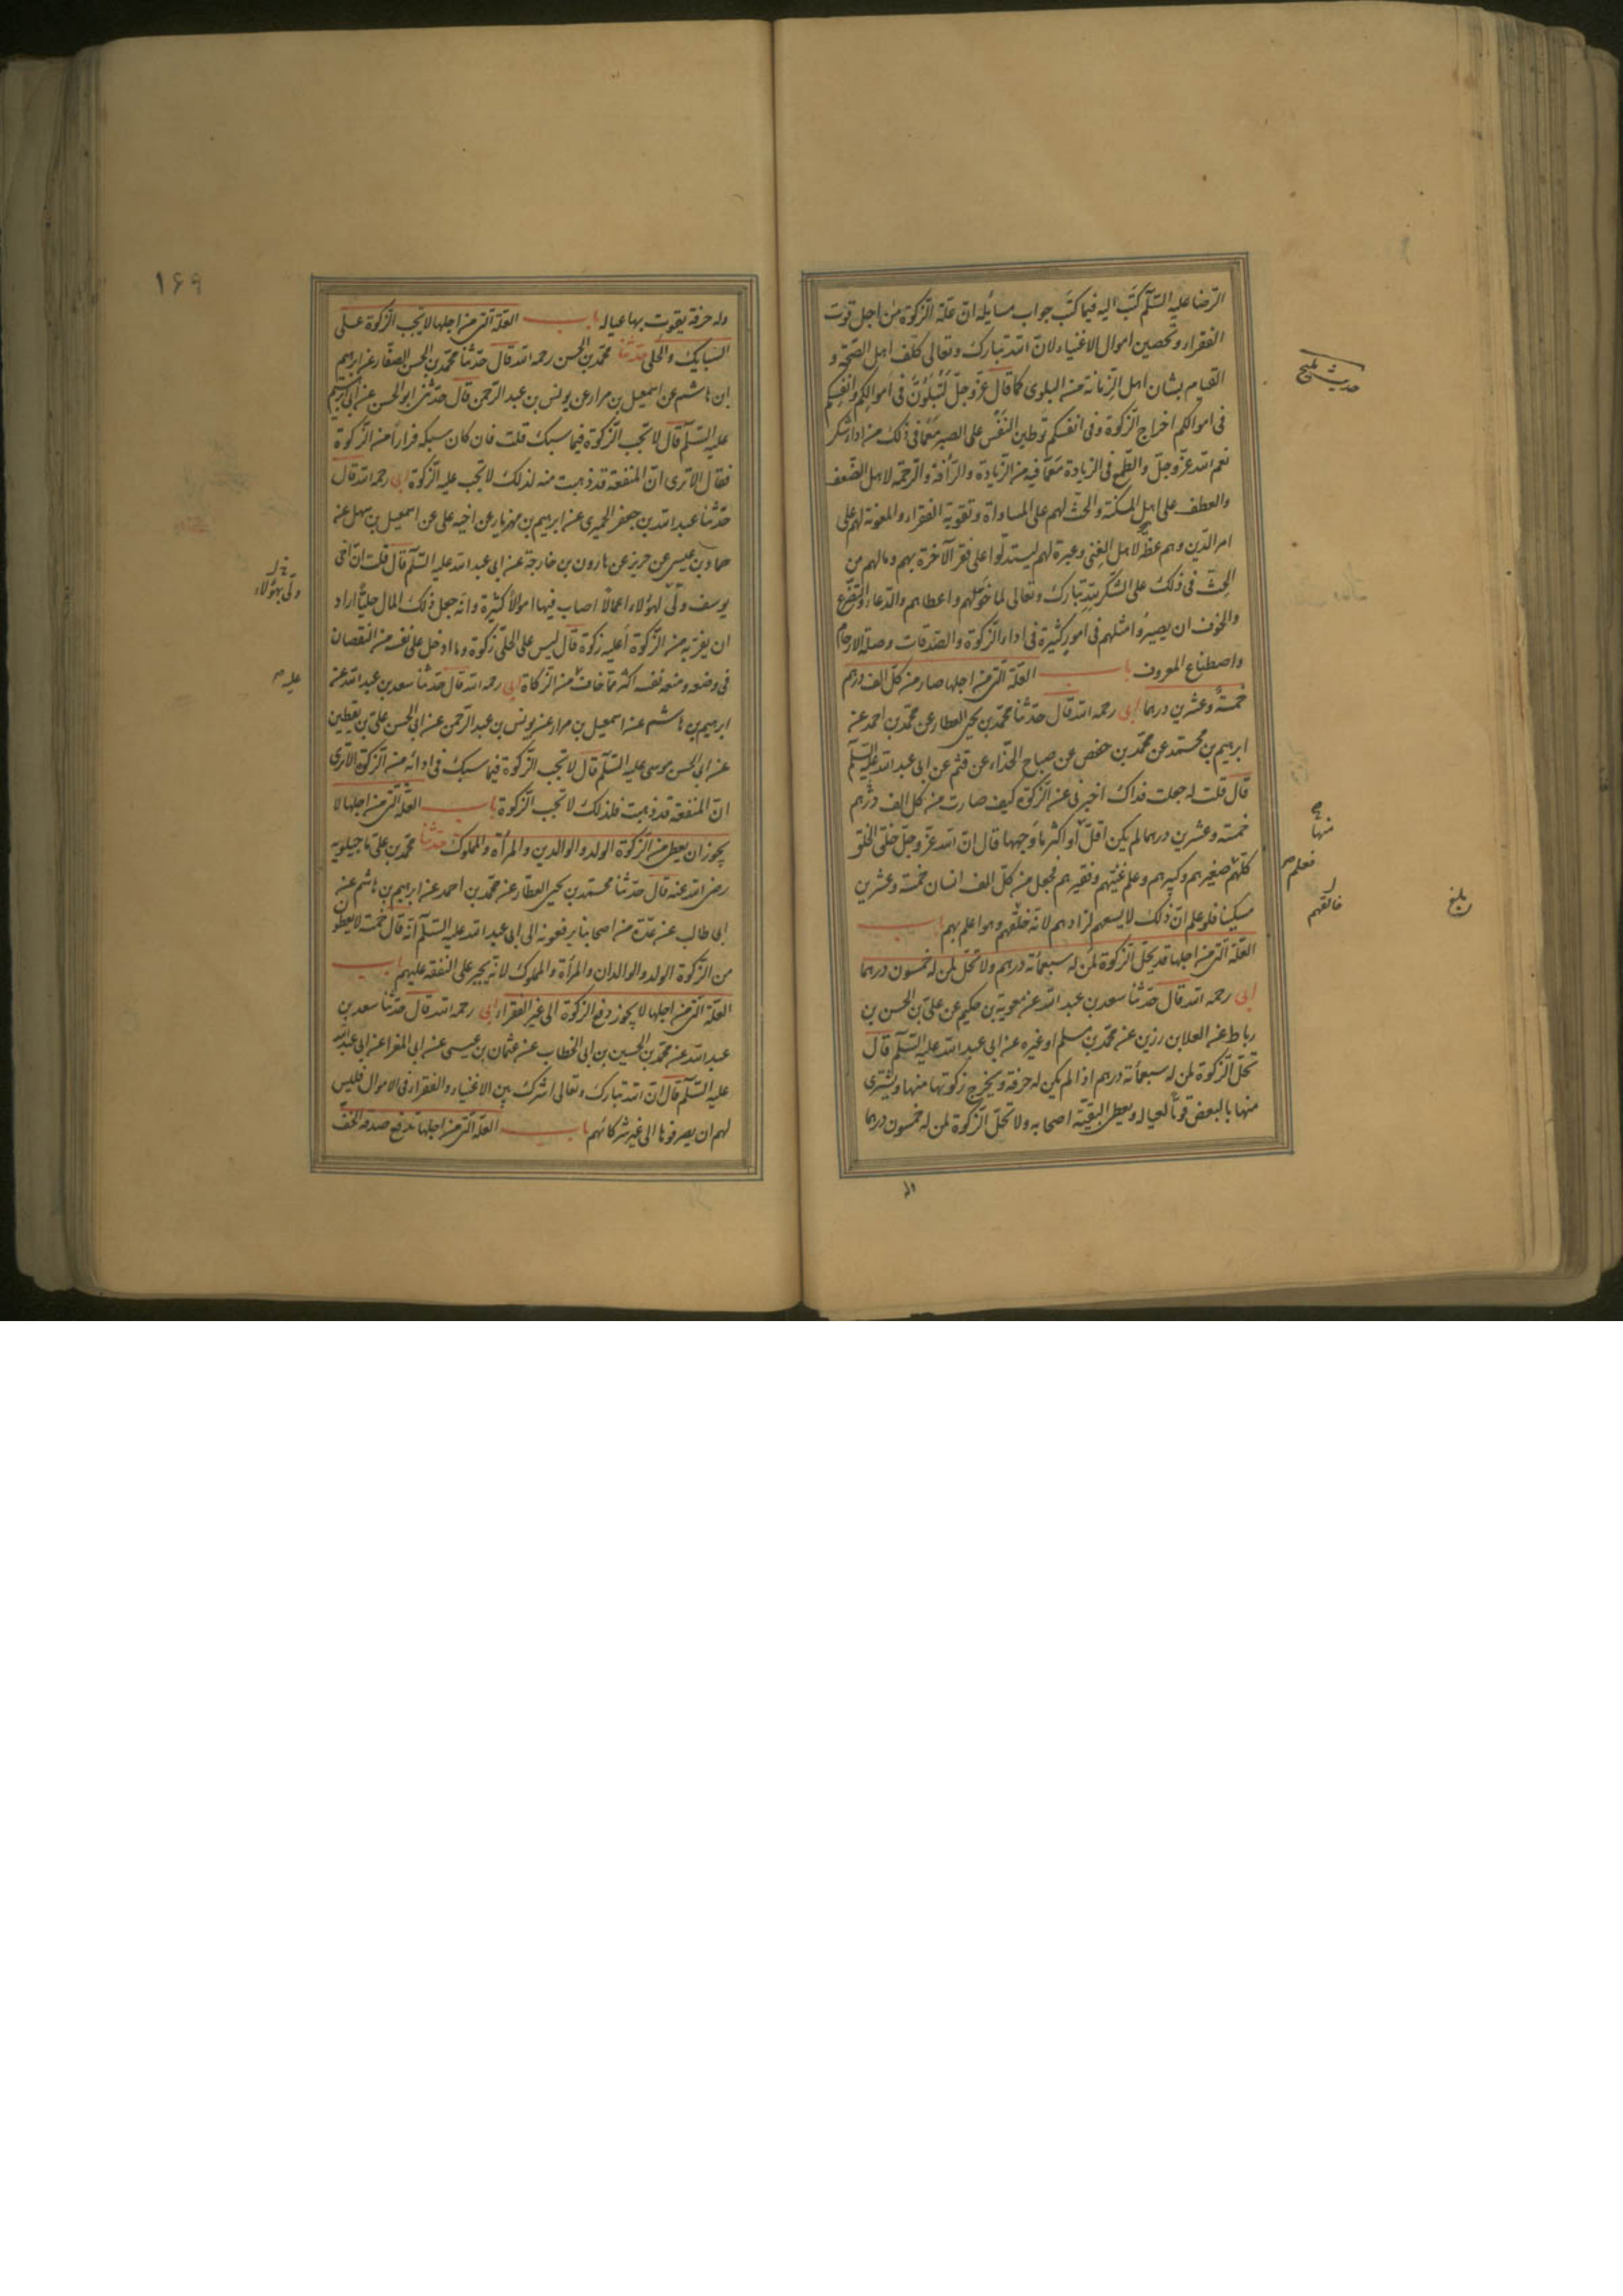 الرضا عليه السلم كتب اليه فيما كتب جواب مسايله ان علة الزكوة من اجل قوت
الفقراء وتحصين اموال الاغنياء لان الله تبارك وتعالى كلف اهل الصحة و
القيام بشان اهل الزمانة من البلوى كما قال عز وجل لتبلون في اموالكم وانفسكم
في اموالكم اخراج الزكوة وفي انفسكم توطين النفس على الصبر مع ما في ذلك من اداء شكر
نعم الله عز وجل والطمع في الزيادة مع ما فيه من الزيادة والرأفة والرحمة لاهل الضعف
والعطف على اهل المسكنة والحث لهم على المساواة وتقوية الفقراء والمعونة لهم على
امر الدين وهم عظة لاهل الغنى وعبرة لهم ليستدلوا على فقر الآخرة بهم ومالهم من
الحث في ذلك على الشكر لله تبارك وتعالى لما خولهم واعطاهم والدعاء والتضرع
والخوف ان يصيروا مثلهم في امور كثيرة في اداء الزكوة والصدقات وصلة الارحام
واصطناع المعروف باب العلة التي من اجلها صار من كل الف درهم
خمسة وعشرين درهما ابي رحمه الله قال حدثنا محمد بن يحيى العطار عن محمد بن احمد عن
ابراهيم بن محمد عن محمد بن حفص عن صباح الحذاء عن قثم عن ابي عبد الله عليه السلم
قال قلت له جعلت فداك اخبرني عن الزكوة كيف صارت من كل الف درهم
خمسة وعشرين درهما لم يكن اقل او اكثر ما وجهها قال ان الله عز وجل خلق الخلق
كلهم صغيرهم وكبيرهم وعلم غنيهم وفقيرهم فجعل من كل الف انسان خمسة وعشرين
مسكينا فلو علم ان ذلك لا يسعهم لزادهم لانه خلقهم وهو اعلم بهم باب
العلة التي من اجلها قد يحل الزكوة لمن له سبعمأته درهم ولا تحل لمن له خمسون درهما
ابي رحمه الله قال حدثنا سعد بن عبد الله عن معوية بن حكيم عن علي بن الحسن بن
رباط عن العلا بن رزين عن محمد بن مسلم او غيره عن ابي عبد الله عليه السلم قال
تحل الزكوة لمن له سبعمأته درهم اذا لم يكن له حرفة ويخرج زكوتها منها ويشتري
منها بالبعض قوتا لعياله ويعطي البقية اصحابه ولا تحل الزكوة لمن له خمسون درهما
وله
منها
فعلم
خالقهم
بلغ
١٦٩
وله حرفة يقوت بها عياله باب العلة التي من اجلها لا تجب الزكوة على
السبايك والحلي حدثنا محمد بن الحسن رحمه الله قال حدثنا محمد بن الحسن الصفار عن ابراهيم
ابن هاشم عن اسمعيل بن مرار عن يونس بن عبد الرحمن قال حدثني ابو الحسن عن ابي ابراهيم
عليه السلم قال لا تجب الزكوة فيما سبك قلت فان كان سبكه فرارا من الزكوة
فقال الا ترى ان المنفعة قد ذهبت منه لذلك لا تجب عليه الزكوة ابي رحمه الله قال
حدثنا عبد الله بن جعفر الحميري عن ابراهيم بن مهزيار عن اخيه علي عن اسمعيل بن سهل عن
حماد بن عيسى عن حريز عن هارون بن خارجة عن ابي عبد الله عليه السلم قال قلت ان اخي
يوسف ولي لهؤلاء اعمالا اصاب فيها اموالا كثيرة وانه جعل ذلك المال حليا اراد
ان يفر به من الزكوة أعليه زكوة قال ليس على الحلي زكوة وما ادخل على نفسه من النقصان
في وضعه ومنعه نفسه اكثر مما خاف من الزكاة ابي رحمه الله قال حدثنا سعد بن عبد الله عن
ابراهيم بن هاشم عن اسمعيل بن مرار عن يونس بن عبد الرحمن عن ابي الحسن علي بن يقطين
عن ابي الحسن موسى عليه السلم قال لا تجب الزكوة فيما سبك في ادائه من الزكوة الا ترى
ان المنفعة قد ذهبت فلذلك لا تجب الزكوة باب العلة التي من اجلها لا
يجوز ان يعطى من الزكوة الولد والوالدين والمرأة والمملوك حدثنا محمد بن علي ماجيلويه
رضي الله عنه قال حدثنا محمد بن يحيى العطار عن محمد بن احمد عن ابراهيم بن هاشم عن
ابي طالب عن عدة من اصحابنا يرفعونه الى ابي عبد الله عليه السلم انه قال خمسة لا يعطون
من الزكوة الولد والوالدان والمرأة والمملوك لانه يجبر على النفقة عليهم باب
العلة التي من اجلها لا يجوز دفع الزكوة الى غير الفقراء ابي رحمه الله قال حدثنا سعد بن
عبد الله عن محمد بن الحسين بن ابي الخطاب عن عثمان بن عيسى عن ابي المغرا عن ابي عبد الله
عليه السلم قال ان الله تبارك وتعالى اشرك بين الاغنياء والفقراء في الاموال فليس
لهم ان يصرفوها الى غير شركائهم باب العلة التي من اجلها تدفع صدقة الخف
ولي بهؤلاء
عليه